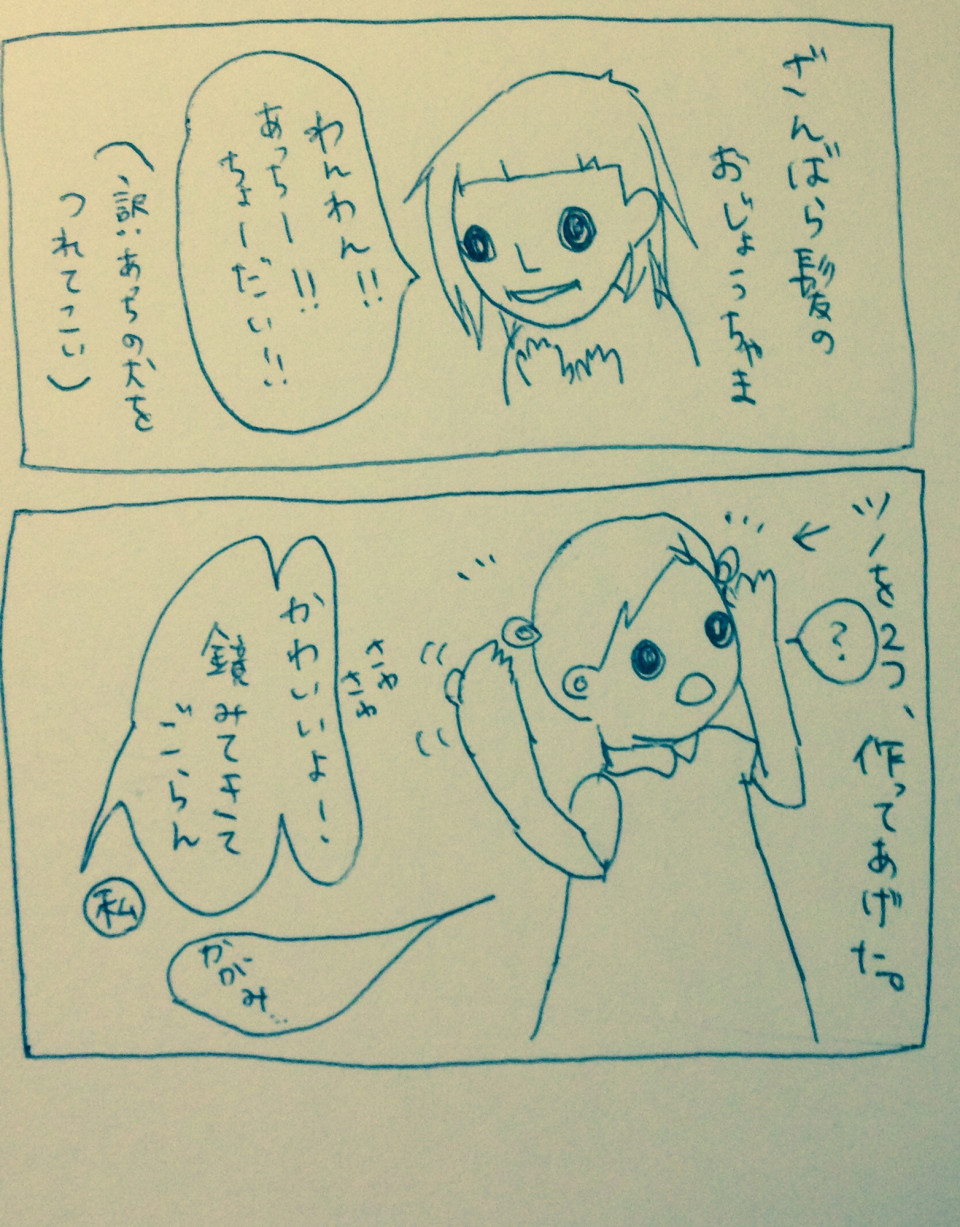 ざんばら髪の
おじょうちゃま
わんわん!!
あっちー!!
ちょーだい!!
(訳:あっちの犬を
つれてこい)
ツノを2つ、作ってあげた。
?
さわ
さわ
かわいいよー!
鏡みてきて
ごらん
私
かがみ…